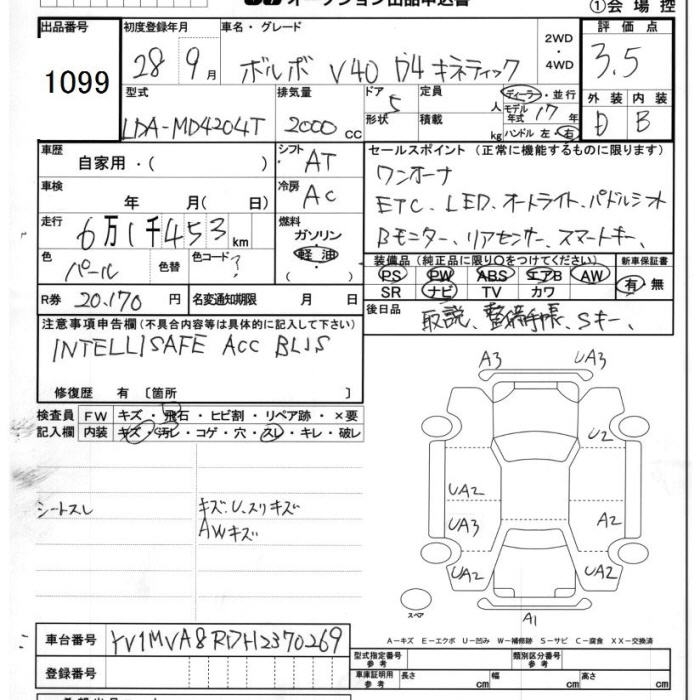 オークション出品申込書 ①会場控
出品番号 1099
初度登録年月 28 9月
車名・グレード ボルボ V40 D4 キネティック
2WD・4WD
評価点 3.5
外装 D 内装 B
型式 LDA-MD4204T
排気量 2000cc
ドア 5 形状
定員 人
積載 kg
ディーラー・並行
モデル年式 17年
ハンドル 左・右
車歴 自家用・( )
シフト AT
車検 年 月( 日)
冷房 AC
走行 6万1千453km
燃料 ガソリン・軽油 ( )
色 パール 色替 色コード ?
R券 20.170円 名変通知期限 月 日
セールスポイント (正常に機能するものに限ります)
ワンオーナ
ETC、LED、オートライト、パドルシフト
Bモニター、リアセンサー、スマートキー、
装備品(純正品に限り○をつけてください) 新車保証書
PS PW ABS エアB AW 有・無
SR ナビ TV カワ
後日品 取説、整備手帳、Sキー、
注意事項申告欄(不具合内容等は具体的に記入して下さい)
INTELLISAFE ACC BLIS
修復歴 有〔箇所
検査員記入欄
FW キズ・飛石・ヒビ割・リペア跡・×要
内装 キズ・汚レ・コゲ・穴・スレ・キレ・破レ
シートスレ
キズ.U.スリキズ
AWキズ
A3 UA3
U2
UA2
UA3 A2
UA2 UA2
スペア A1
A-キズ E-エクボ U-凹み W-補修跡 S-サビ C-腐食 XX-交換済
車台番号 YV1MVA8RDH2370269
登録番号
型式指定番号 参考 類別区分番号 参考
車庫証明用 参考 長さ cm 幅 cm 高さ cm